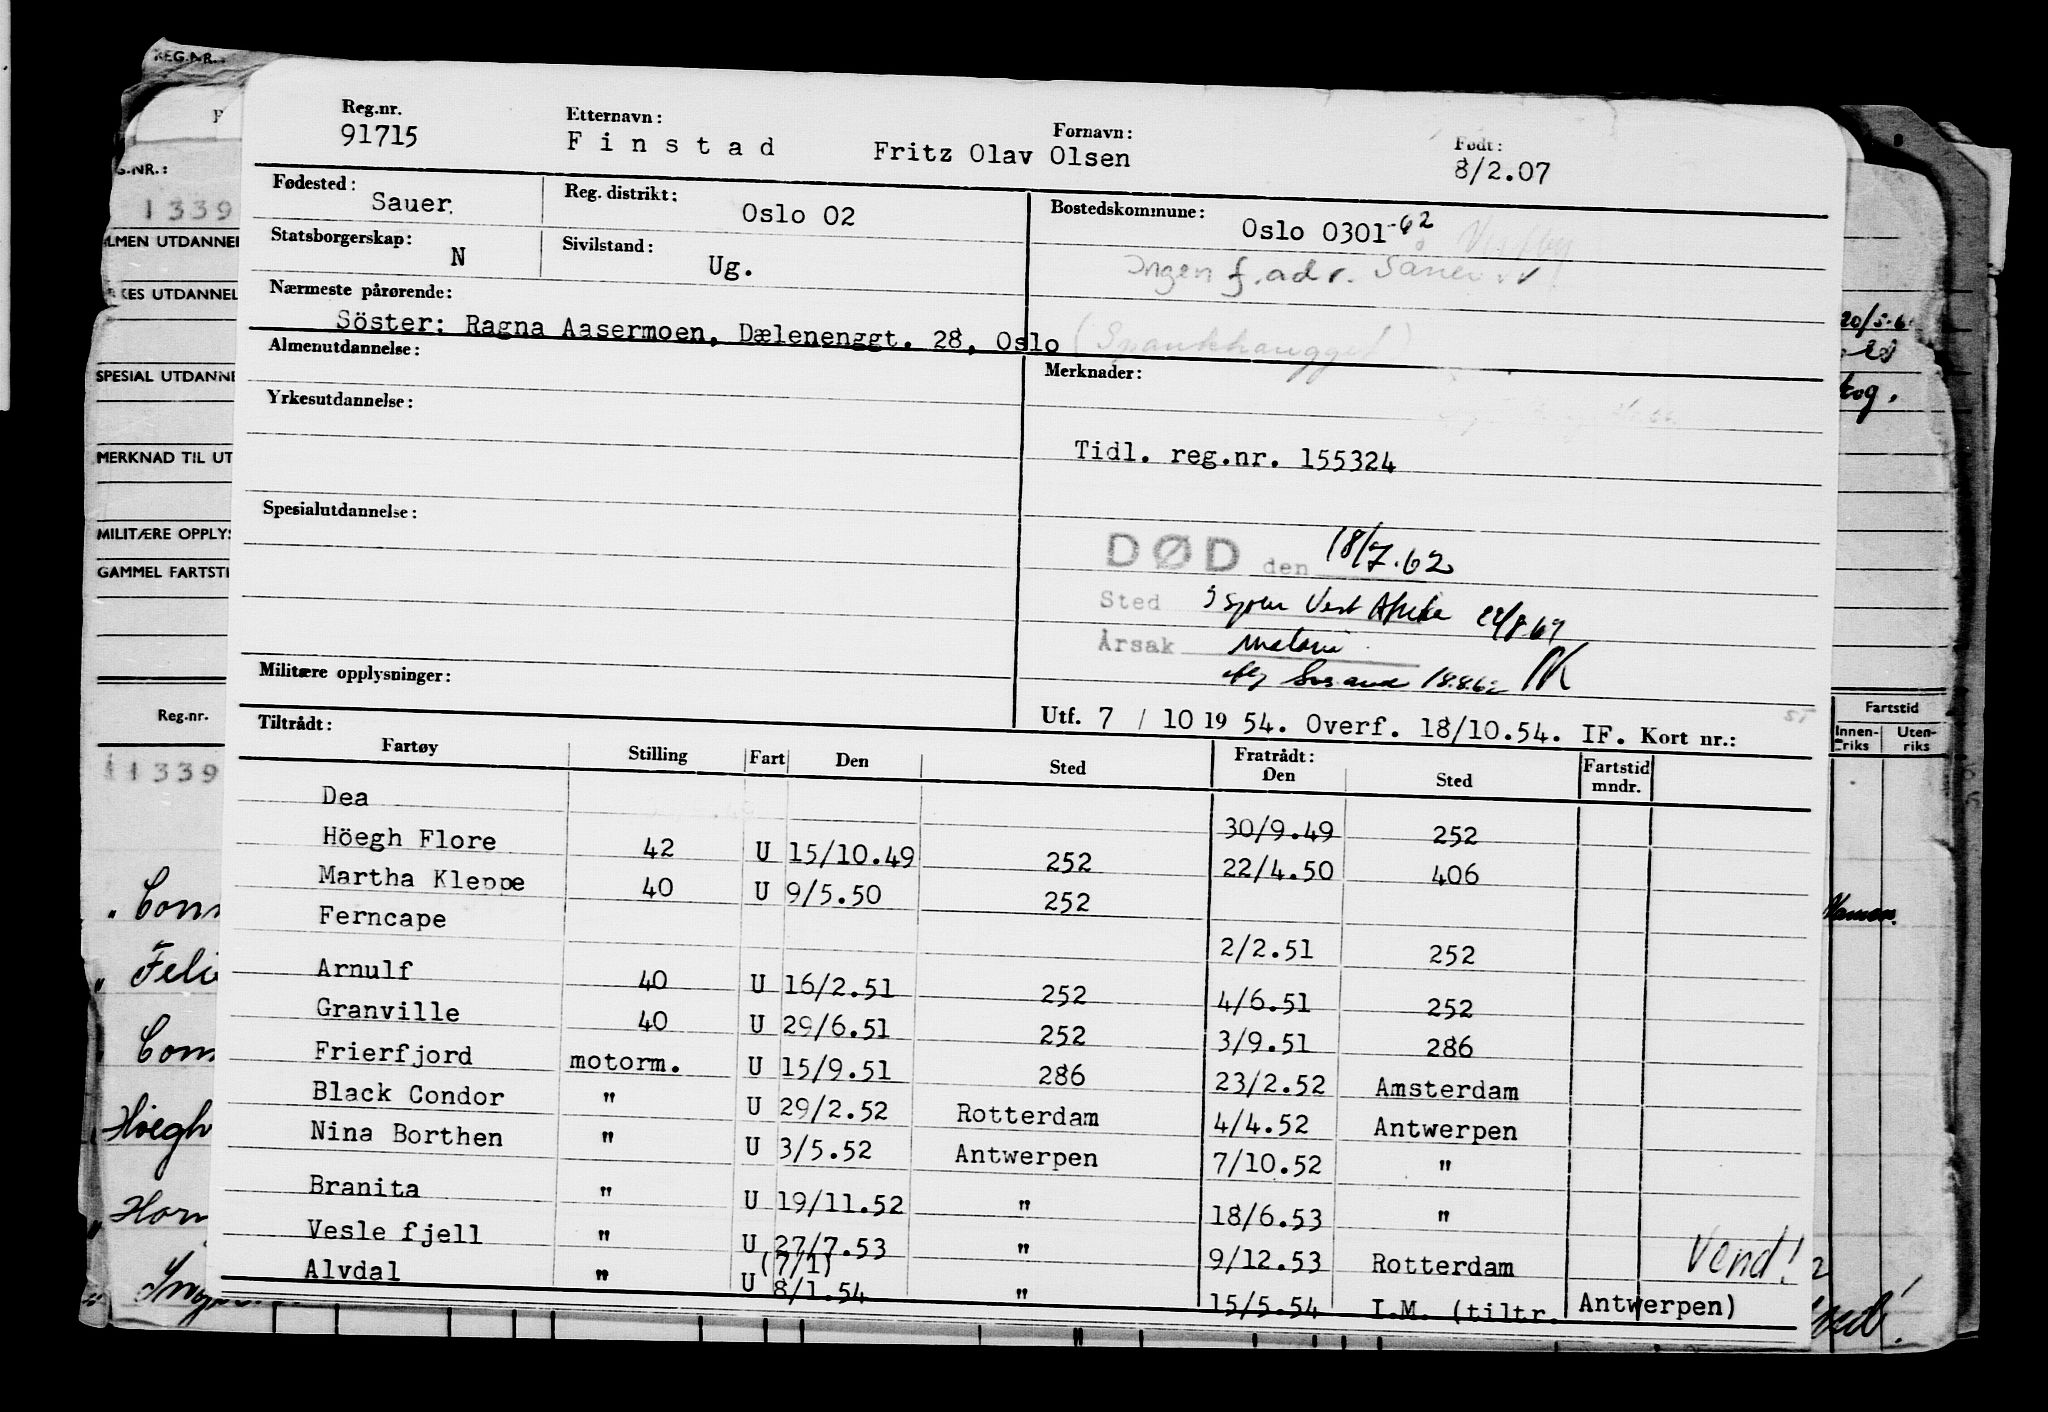 REG.NR.
Reg.nr. Etternavn: Fornavn: Født:
91715 Finstad Fritz Olav Olsen 8/2.07
Fødested: Sauer. Reg. distrikt: Oslo 02 Bostedskommune: Oslo 0301-62
Statsborgerskap: N Sivilstand: Ug. Ingen f.adr.
Nærmeste pårørende:
Söster: Ragna Aasermoen, Dælenenggt. 28, Oslo
Almenutdannelse: Merknader:
Yrkesutdannelse:
Tidl. reg.nr. 155324
Spesialutdannelse:
DØD den 18/7.62
Sted Vest Afrika
Årsak malaria
18.8.62
Militære opplysninger:
Utf. 7 / 10 19 54. Overf. 18/10.54. IF. Kort nr.:
Tiltrådt: Fratrådt:
Fartøy Stilling Fart Den Sted Den Sted Fartstid mndr.
Dea 30/9.49 252
Höegh Flore 42 U 15/10.49 252 22/4.50 406
Martha Kleppe 40 U 9/5.50 252
Ferncape 2/2.51 252
Arnulf 40 U 16/2.51 252 4/6.51 252
Granville 40 U 29/6.51 252 3/9.51 286
Frierfjord motorm. U 15/9.51 286 23/2.52 Amsterdam
Black Condor " U 29/2.52 Rotterdam 4/4.52 Antwerpen
Nina Borthen " U 3/5.52 Antwerpen 7/10.52 "
Branita " U 19/11.52 " 18/6.53 "
Vesle fjell " U 27/7.53 " 9/12.53 Rotterdam
(7/1)
Alvdal " U 8/1.54 " 15/5.54 I.M. (tiltr. Antwerpen)
Vend!
G.NR.:
1339
LMEN UTDANNEL
KES UTDANNEL
SPESIAL UTDANNE
MERKNAD TIL UT
MILITÆRE OPPLYS
GAMMEL FARTSTI
Reg.nr.
11339
Höegh
Fartstid
Innen-riks Uten-riks